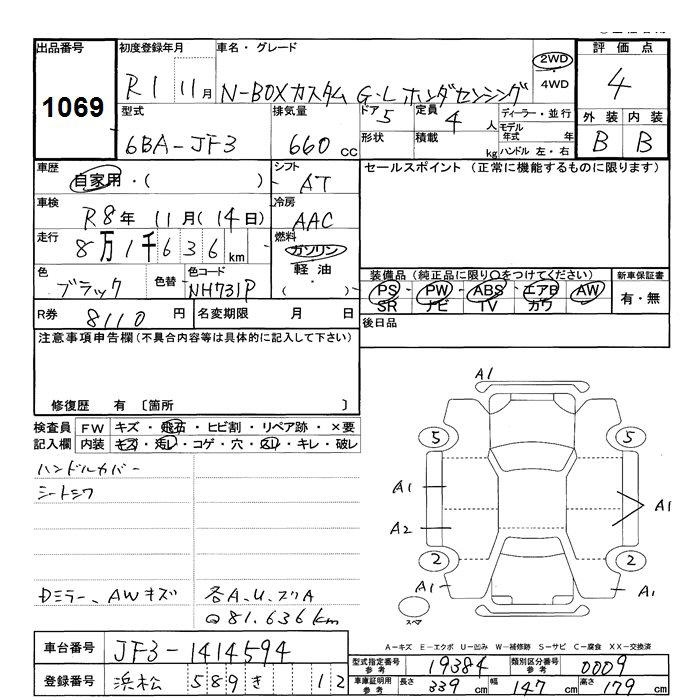 出品番号
1069
初度登録年月
R1 11月
車名・グレード
N-BOXカスタム G・L ホンダセンシング
2WD
・
4WD
評価点
4
型式
6BA-JF3
排気量
660 cc
ドア 5
形状
定員 4 人
積載 kg
ディーラー・並行
モデル年式 年
ハンドル 左・右
外装 内装
B B
車歴
自家用・( )
シフト
AT
セールスポイント (正常に機能するものに限ります)
車検
R8年 11月(14日)
冷房
AAC
走行
8万1千636 km
燃料
ガソリン
軽油
・( )
色
ブラック
色替
色コード
NH731P
装備品 (純正品に限り○をつけてください)
PS・PW・ABS・エアB・AW
SR ナビ TV カワ
新車保証書
有・無
R券 8110 円
名変期限 月 日
後日品
注意事項申告欄(不具合内容等は具体的に記入して下さい)
修復歴 有 〔箇所 〕
検査員記入欄
FW キズ・飛石・ヒビ割・リペア跡・×要
内装 キズ・汚レ・コゲ・穴・凹レ・キレ・破レ
ハンドルカバー
シートシワ
Dミラー、AWキズ
各A.U.スリA
@81.636km
A1
5 5
A1 A1
A2
2 2
A1 A1
スペア
A-キズ E-エクボ U-凹み W-補修跡 S-サビ C-腐食 XX-交換済
車台番号 JF3-1414594
登録番号 浜松 589 き 12
型式指定番号参考 19384
類別区分番号参考 0009
車庫証明用参考 長さ 339 cm 幅 147 cm 高さ 179 cm